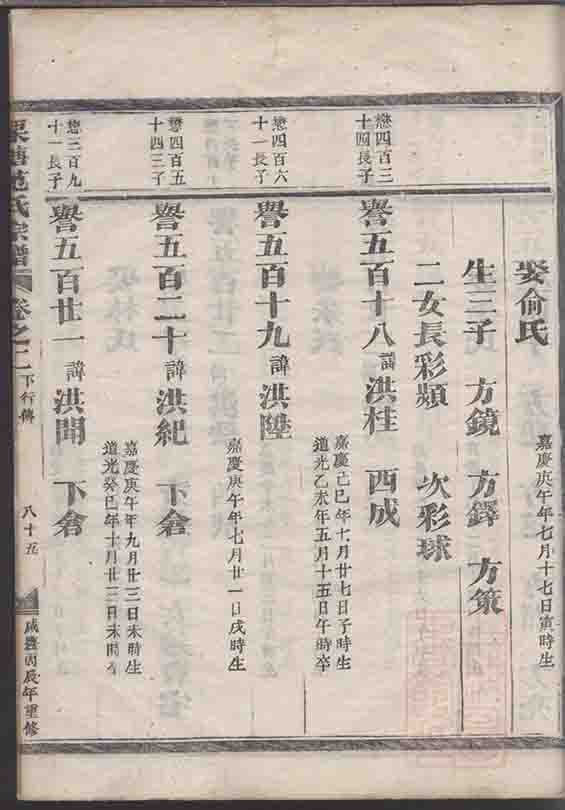 娶俞氏 嘉慶庚午年七月十七日寅時生
生三子 方鏡 方鐸 方策
二女長彩頻 次彩球
懋四百三十四長子
譽五百十八諱洪桂 西成
嘉慶己巳年十月廿七日子時生
道光乙未年五月十五日午時卒
懋四百六十一長子
譽五百十九諱洪陞
嘉慶庚午年七月廿一日戌時生
懋四百五十四三子
譽五百二十諱洪紀 下倉
嘉慶庚午年九月廿三日未時生
道光癸巳年十月廿二日未時卒
懋三百九十一長子
譽五百廿一諱洪開 下倉
栗塘范氏宗譜 卷之二 下行傳 八十五 咸豐丙辰年重修